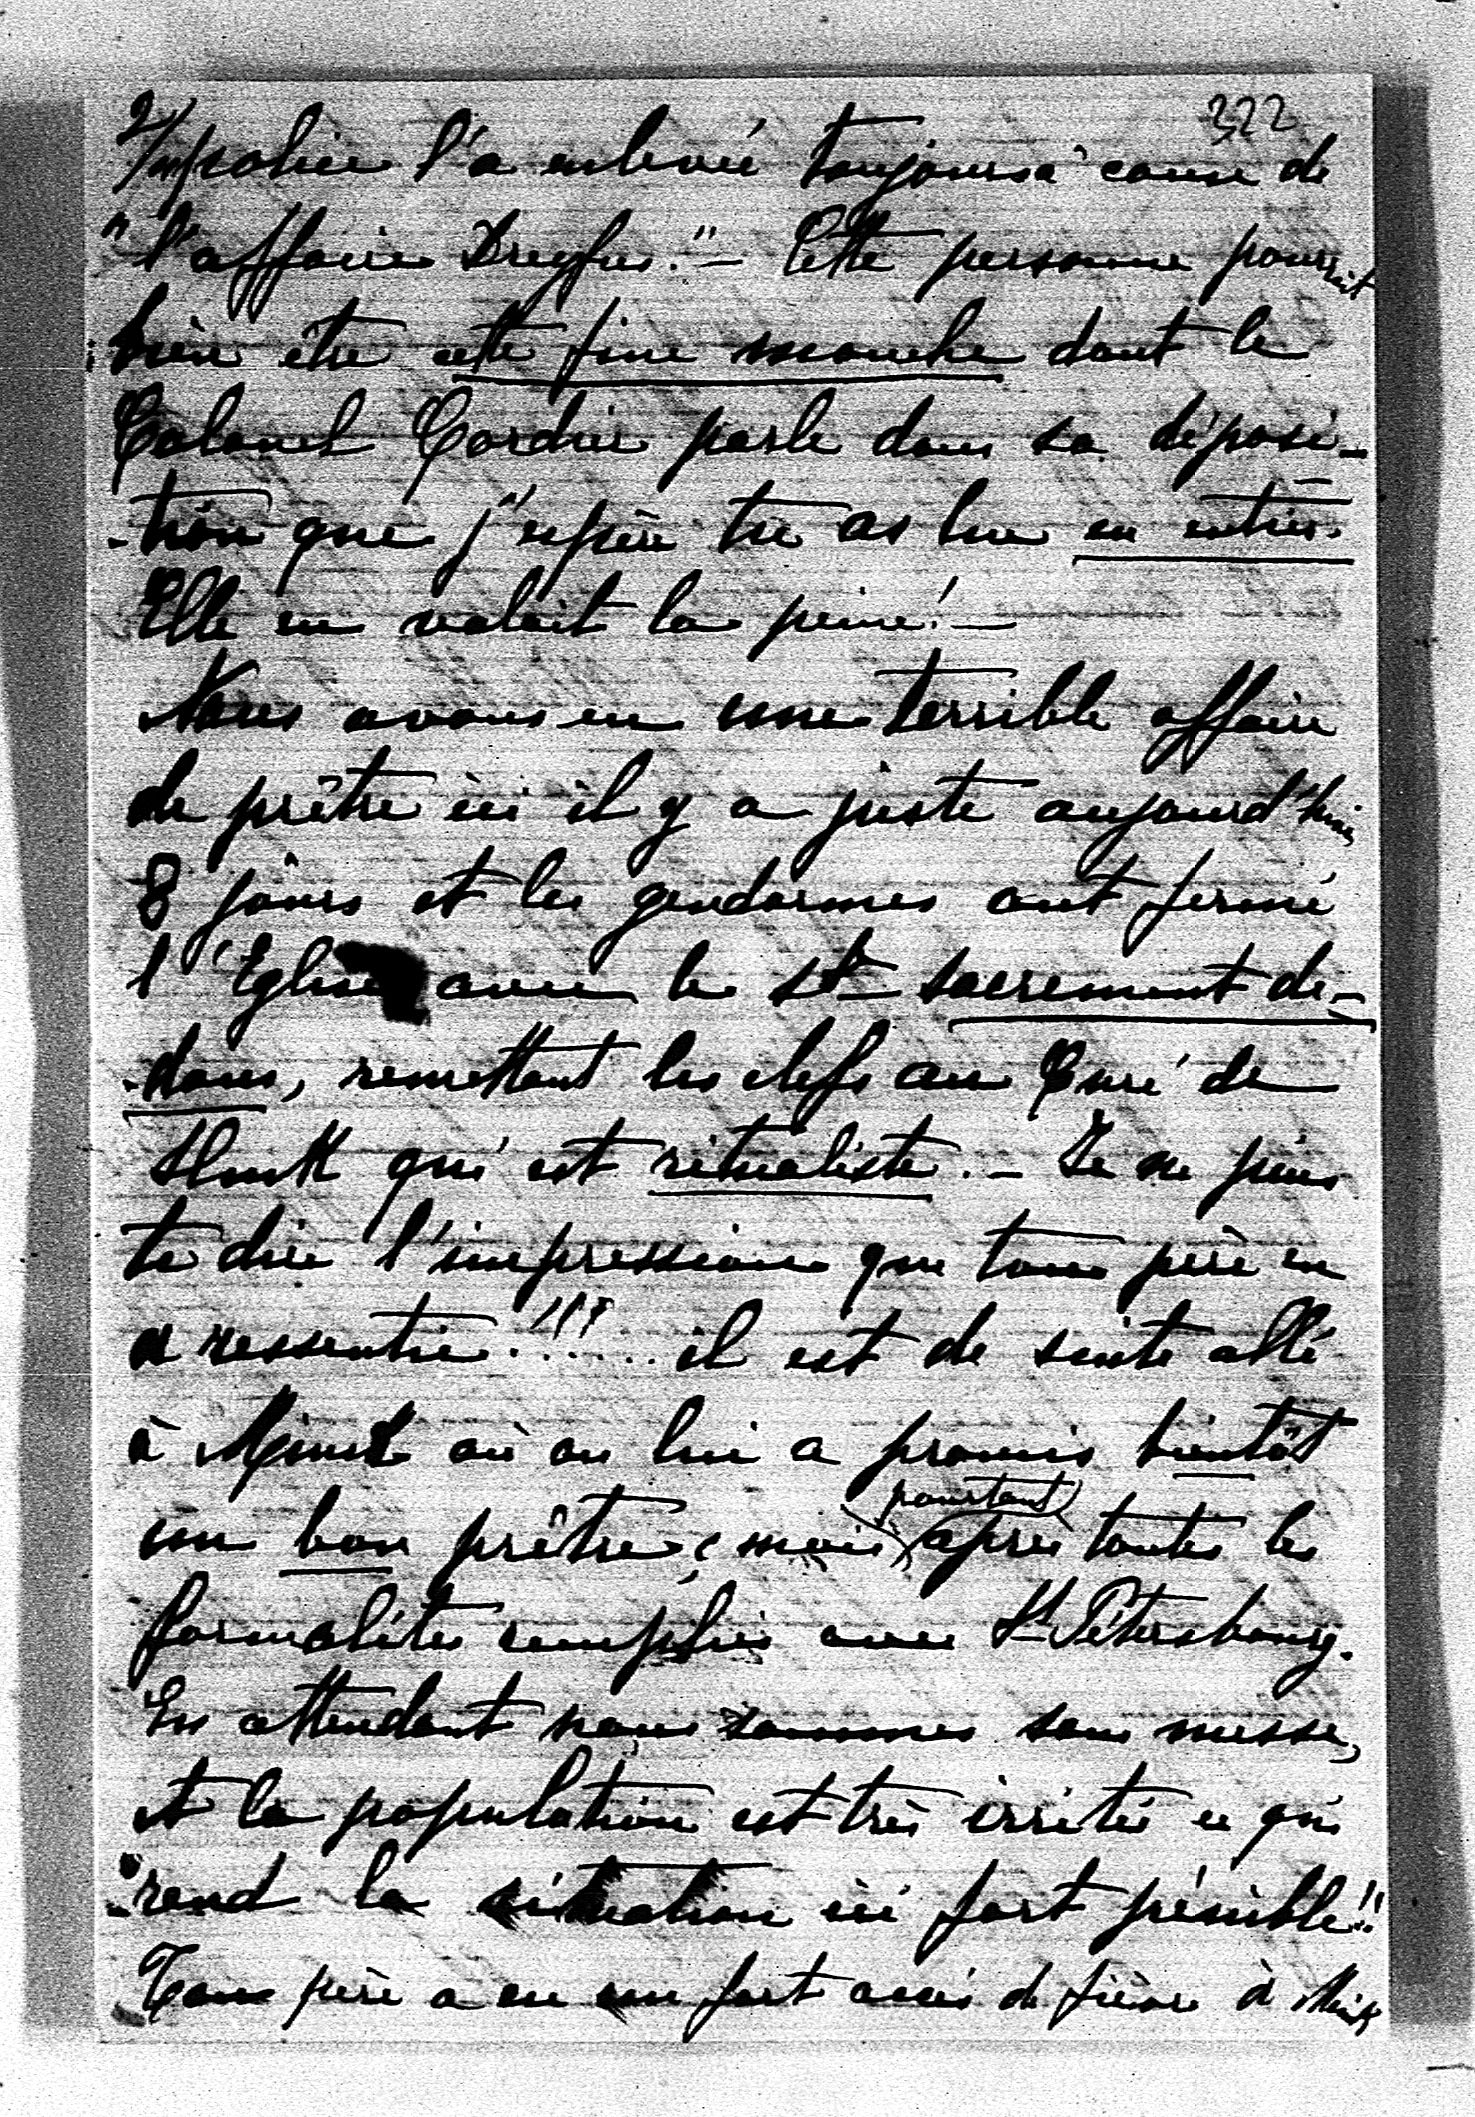 322
2/ police l'a enlevée toujours à cause de
"l'affaire Dreyfus." – Cette personne pourrait
bien être cette fine mouche dont le
Colonel Cordier parle dans sa déposi-
-tion que j'espère tu as lue en entier.
Elle en valait la peine! –
Nous avons eu une terrible affaire
de prêtre ici il y a juste aujourd'hui
8 jours et les gendarmes ont fermé
l'Eglise avec le St sacrement de-
-dans, remettant les clefs au Curé de
qui est ritualiste. – Je ne puis
te dire l'impression que ton père en
a ressentie!!!... il est de suite allé
à Minsk où on lui a promis bientôt
un bon prêtre, mais pourtant après toutes les
formalités remplies avec St Pétersbourg.
En attendant nous sommes sans messe,
et la population est très irritée ce qui
rend la situation ici fort pénible!!
Ton père a eu un fort accès de fièvre à Minsk